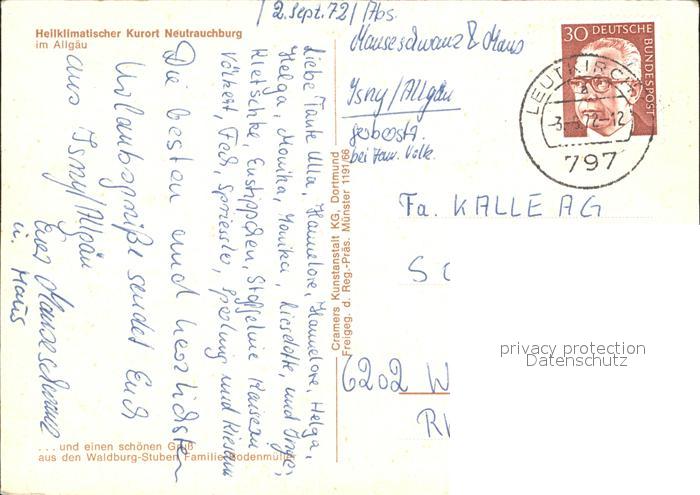 Heilklimatischer Kurort Neutrauchburg
im Allgäu
2. Sept. 72 / Abs.
Mauseschwanz & Maus
Isny/Allgäu
bei Fam. Volk.
Liebe Tante Ulla, Hannelore, Hannelore, Helga,
Helga, Monika, Monika, Lieselotte, und Inge,
Kletschke,
Völkert, Sperling und
Die besten und herzlichsten
Urlaubsgrüße sendet Euch
aus Isny/Allgäu
Euer Mauseschwanz
u. Maus
... und einen schönen Gruß
aus den Waldburg-Stuben Familie Bodenmüller
Cramers Kunstanstalt KG, Dortmund
Freigeg. d. Reg.-Präs. Münster 1191/66
30 DEUTSCHE
BUNDESPOST
LEUTKIRCH
a
-3.-9.72-12
797
Fa. KALLE AG
6202 W
privacy protection
Datenschutz